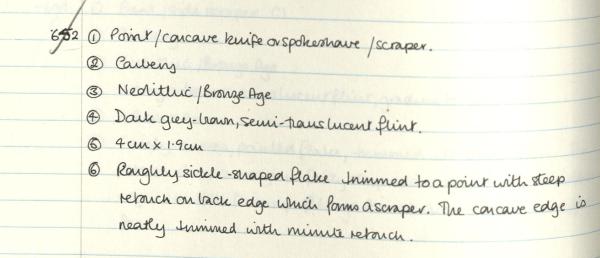 652 ① Point/concave knife or spokeshave/scraper.
②
③ Neolithic/Bronze Age
④ Dark grey-brown, semi-translucent flint.
⑤ 4cm x 1.9cm
⑥ Roughly sickle-shaped flake trimmed to a point with steep
retouch on back edge which forms a scraper. The concave edge is
neatly trimmed with minute retouch.